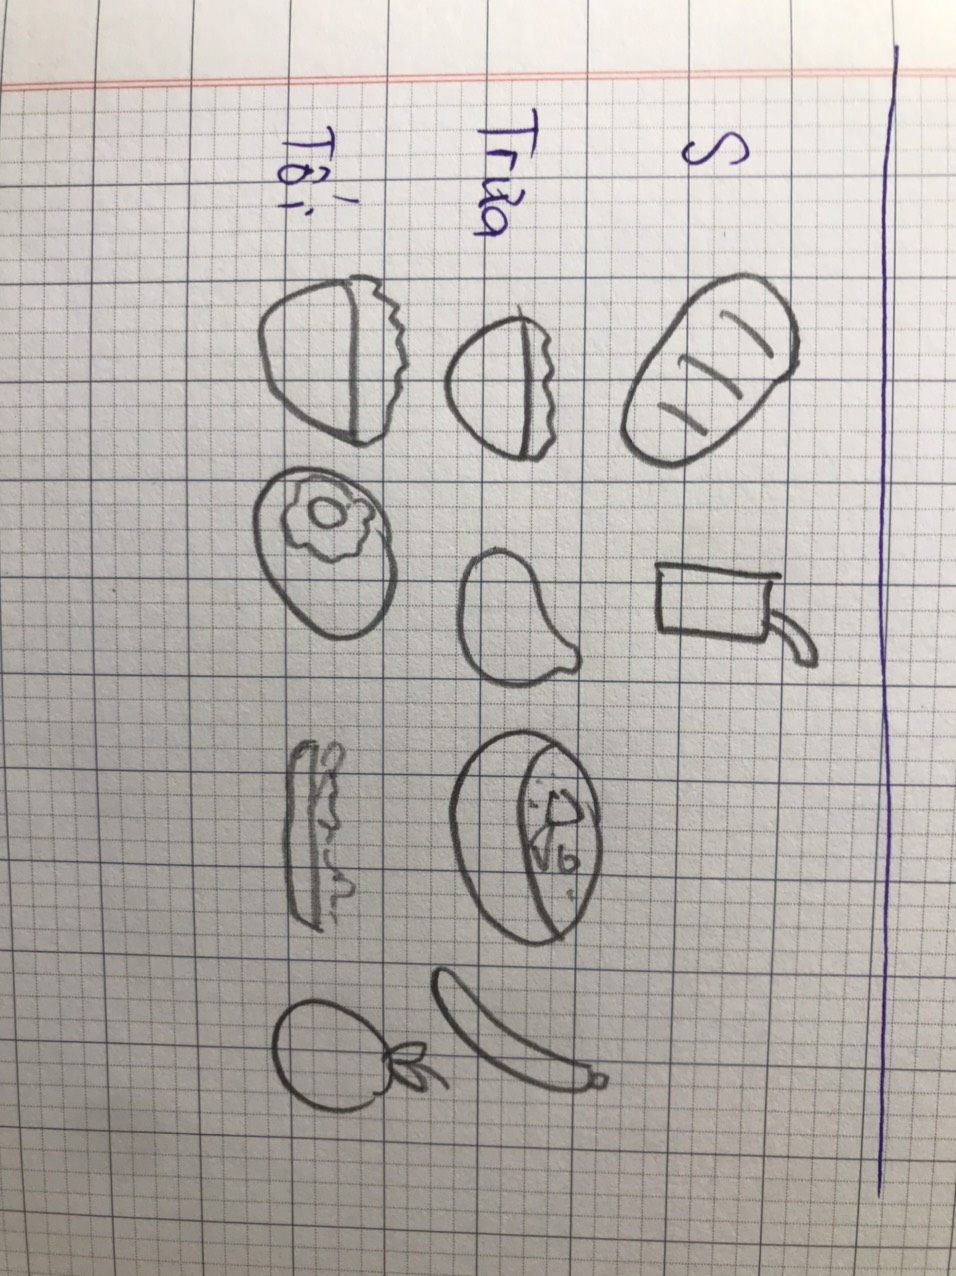 S
Trưa
Tối